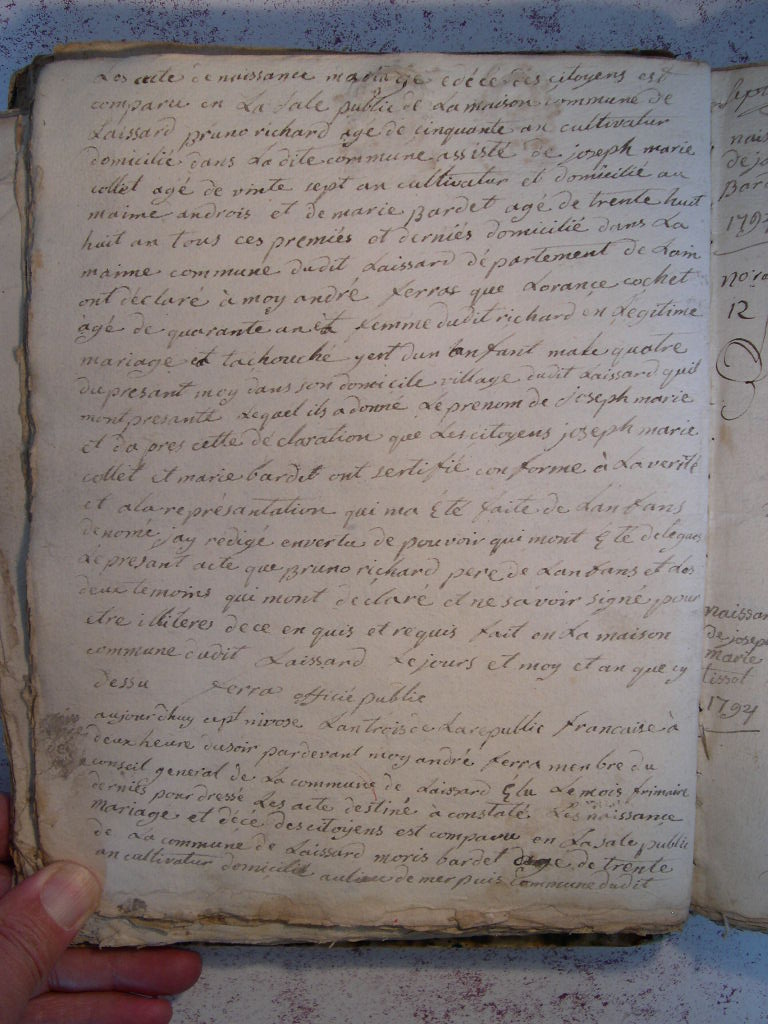 Les acte de naissance mariage et décé des citoyens est
comparu en La sale public de La maison commune de
Laissard Bruno richard agé de cinquante an cultivatur
domicilié dans La dite commune assisté de joseph marie
collet agé de vinte sept an cultivatur et domicilié au
maime androis et de marie Bardet agé de trente huit
huit an tous ces premiés et derniés domicilié dans La
maime commune dudit Laissard département de Lain
ont déclaré à moy andré ferras que Lorance cochet
agé de quarante an et femme dudit richard en Légitime
mariage et tachouché yert dun anfant male quatre
du presant moy dans son domicile village dudit Laissard quil
mont presanté Lequel ils a donné Le prenom de joseph marie
et da pres cette déclaration que Les citoyens joseph marie
collet et marie bardet ont sertifié conforme à La verité
et a la représantation qui ma Eté faite de Lanfans
denomé jay rédigé envertu de pouvoir qui mont Eté delegues
Le presant acte que Bruno richard pere de Lanfans et Les
deux temoins qui mont déclaré et ne savoir signé pour
etre illiteres de ce en quis et requis fait en La maison
commune dudit Laissard Le jours et moy et an que cy
dessu ferra officié public
aujourdhuy cept nivose Lantrois de La republic francaise à
deux heure du soir par devant moy andré ferra menbre du
conseil general de La commune de Laissard Elu Le mois frimaire
derniés pour dressé Les acte destiné à constaté Les naissance
mariage et décé des citoyens est comparu en La sale public
de La commune de Laissard moris bardet age de trente
an cultivatur domicilié au lieu de merpuis commune dudit
Sept
nais
de jo
Bard
1794
no.
12
naissan
de josep
marie
tissot
1794